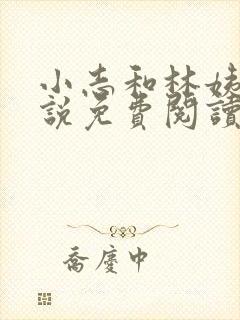 小志和林姊
說免費閱讀
喬慶中